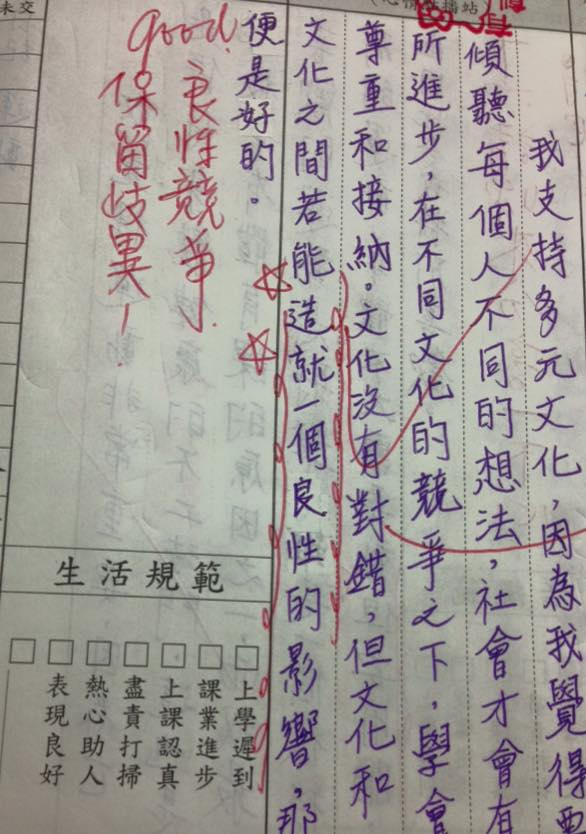 我支持多元文化,因為我覺得
傾聽每個人不同的想法,社會才會有
所進步,在不同文化的競爭之下,學會
尊重和接納。文化沒有對錯,但文化和
文化之間若能造就一個良性的影響,那
便是好的。
good!
良性競爭
保留歧異!
有
未交
生活規範
□上學遲到
□課業進步
□上課認真
□盡責打掃
□熱心助人
□表現良好